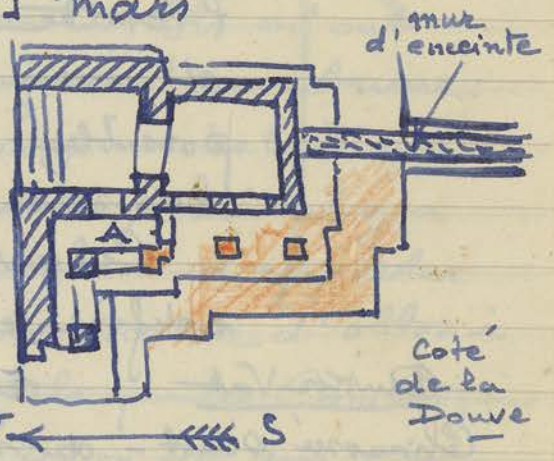 mars
mur
d'enceinte
A
Coté
de la
Douve
S